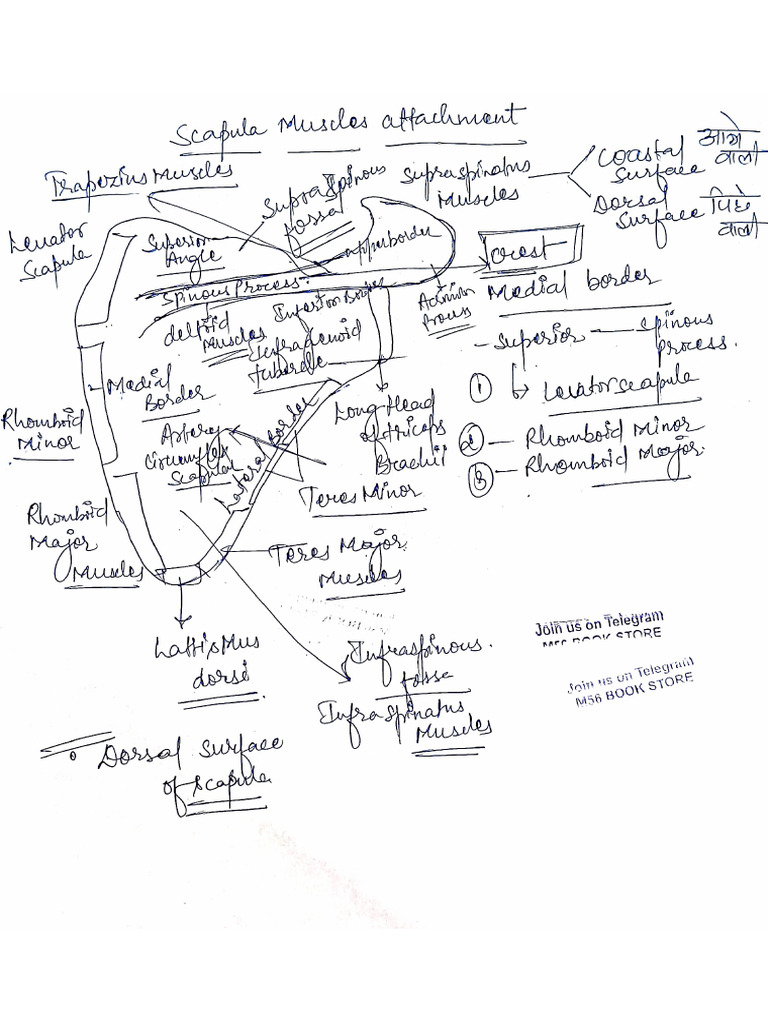 Scapula Muscles attachment
Trapezius Muscles
Supraspinous
fossa
Supraspinatus
Muscles
Coastal
Surface
आगे
वाली
Dorsal
Surface
पिछे
वाली
Levator
Scapula
Superior
Angle
upperborder
Crest
Spinous Process
Inferior Border
deltoid
Muscles
Infraglenoid
tubercle
Medial border
- Superior — Spinous
Process.
① Levator scapula
② — Rhomboid Minor
③ — Rhomboid Major.
Medial
Border
Rhomboid
Minor
Circumflex
Scapular
Lateral border
Long Head
of triceps
Brachii
Teres Minor
Rhomboid
Major
Muscles
Teres Major
Muscles
Lattismus
dorsi
Infraspinous.
fosse
Infraspinatus
Muscles
Dorsal surface
of scapula
Join us on Telegram
M56 BOOK STORE
Join us on Telegram
M56 BOOK STORE